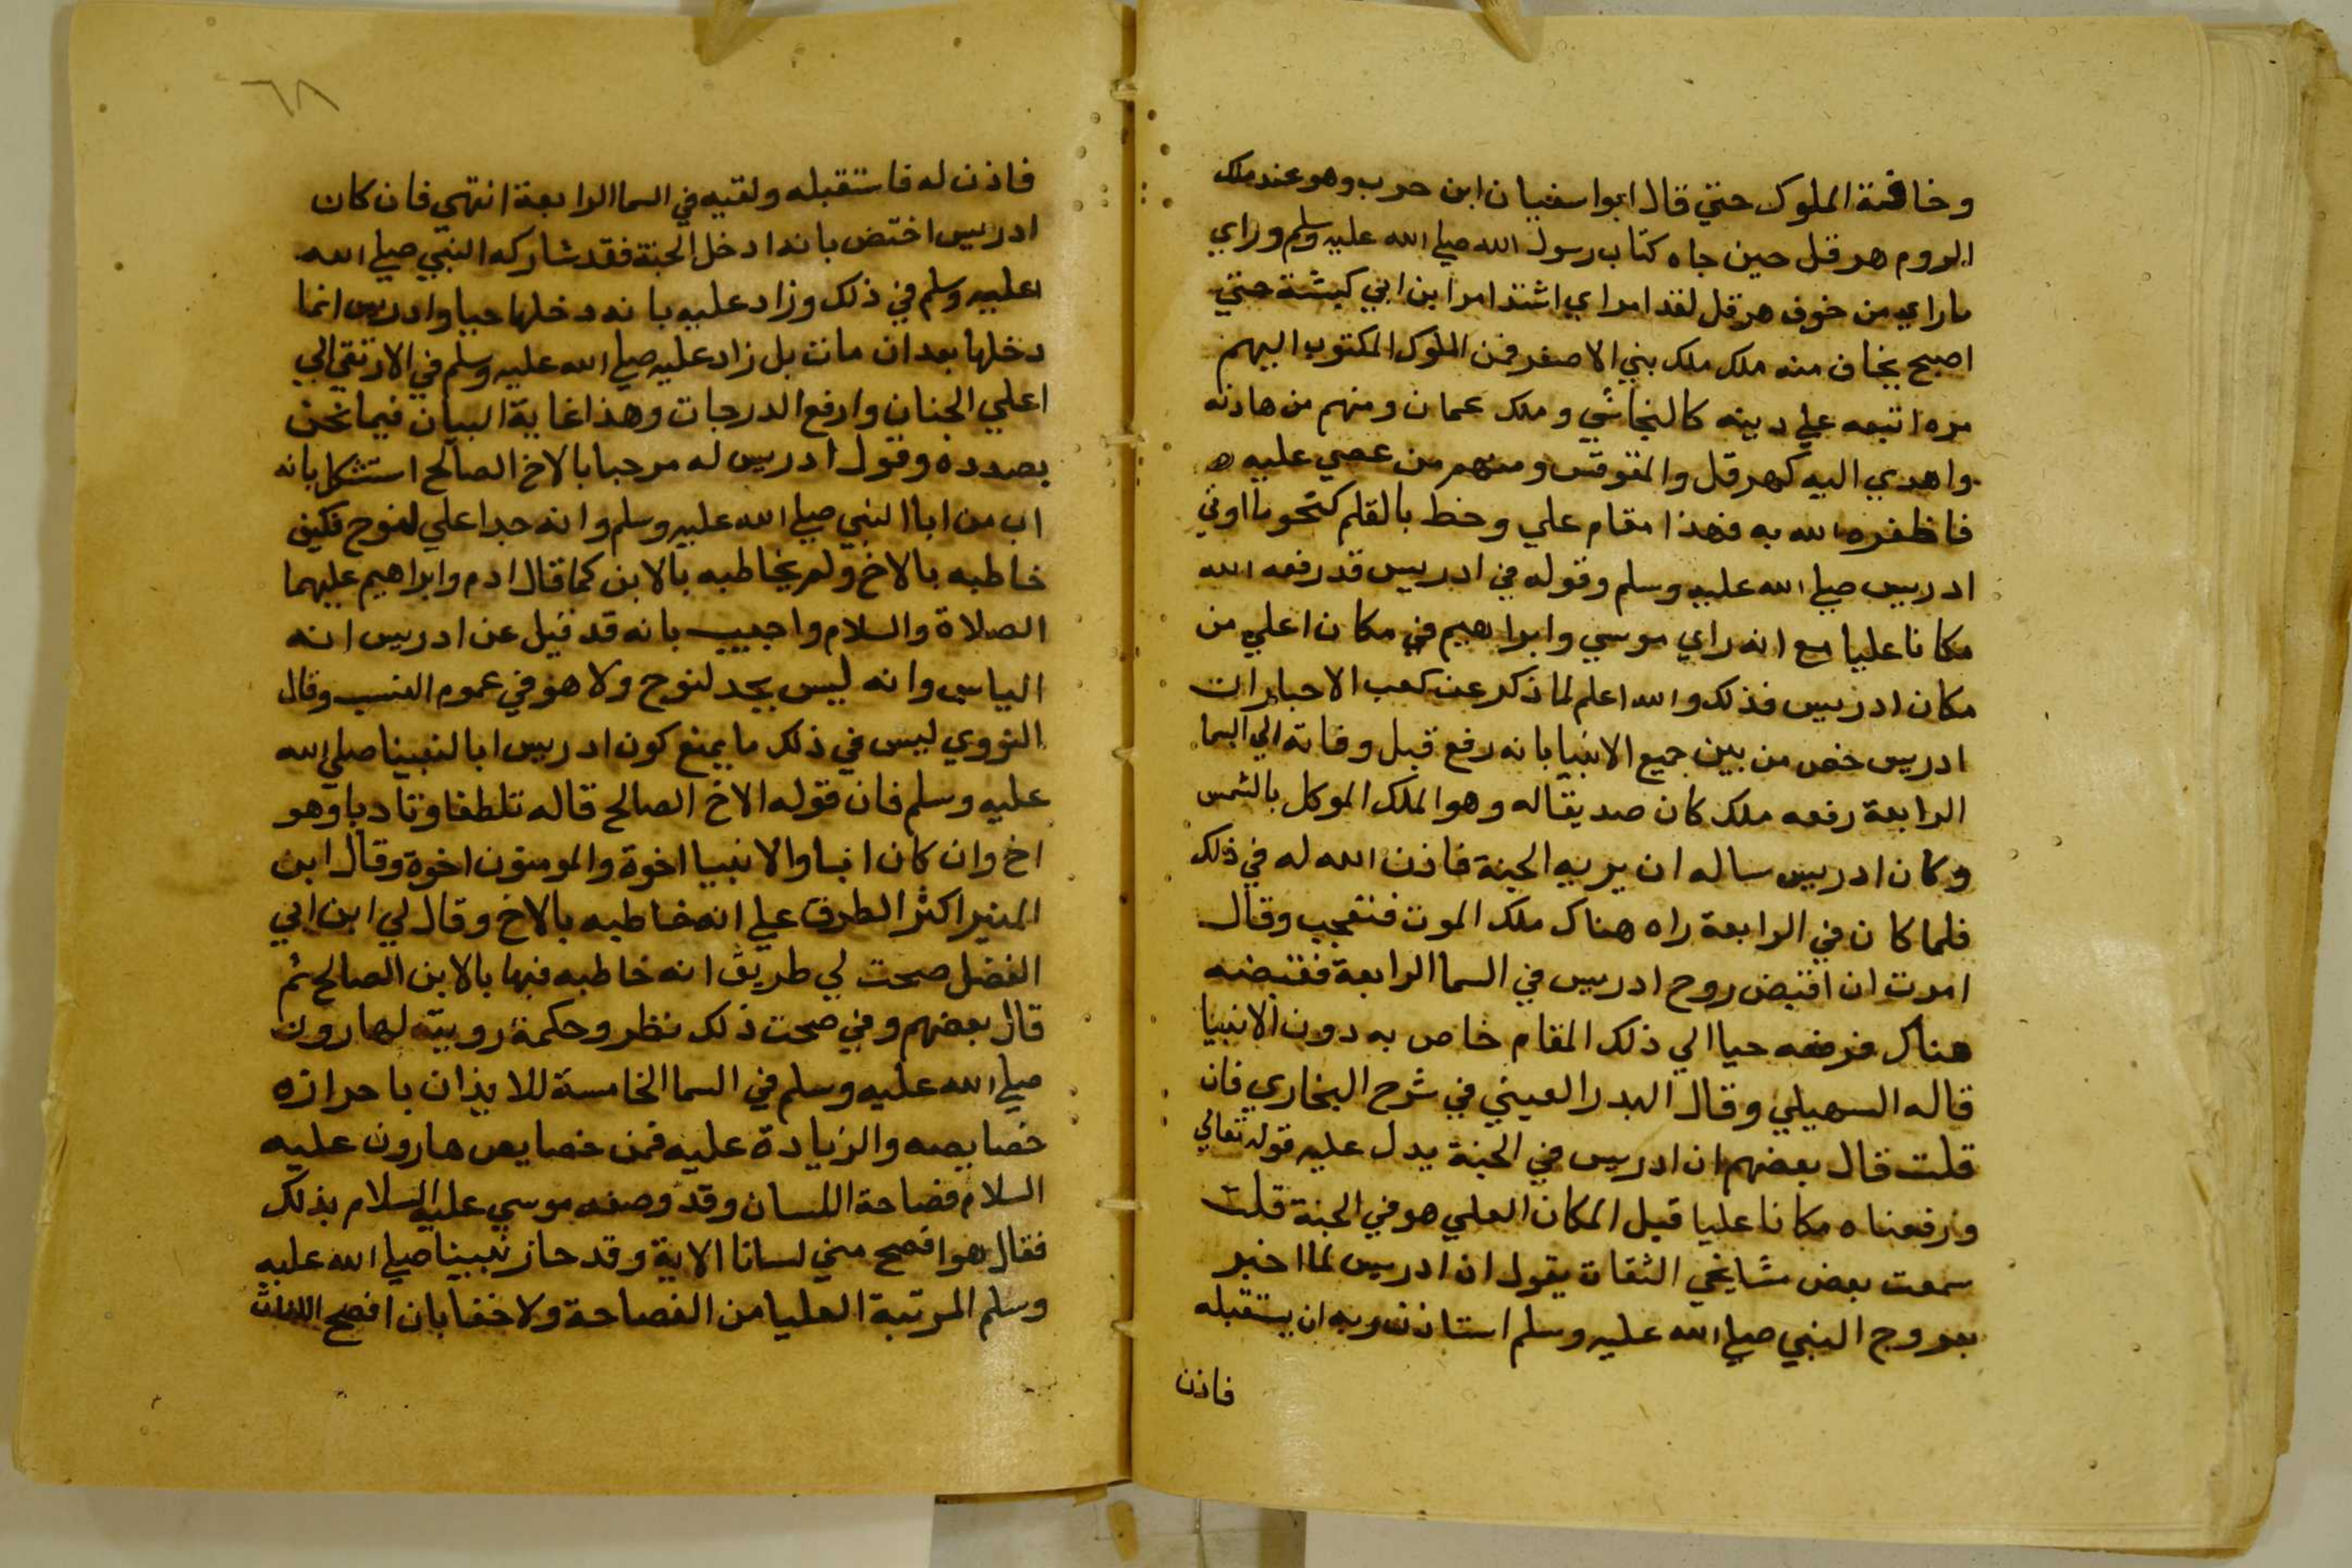 وخافته الملوك حتي قال ابوا سفيان ابن حرب وهو عند ملك
الروم هرقل حين جاه كتاب رسول الله صلي الله عليه وسلم وراي
ما راي من خوف هرقل لقد امر اي اشتد امر ابن ابي كبشة حتي
اصبح يخاف منه ملك ملك بني الاصفر فمن الملوك المكتوب اليهم
من اتبعه علي دينه كالنجاشي وملك عمان ومنهم من هادنه
واهدي اليه كهرقل والمقوقس ومنهم من عصي عليه
فاظفره الله به فهذا مقام علي وخط بالقلم كنحو ما اوتي
ادريس صلي الله عليه وسلم وقوله في ادريس قد رفعه الله
مكانا عليا مع انه راي موسي وابراهيم في مكان اعلي من
مكان ادريس فذلك والله اعلم لما ذكر عن كعب الاحبار ان
ادريس خص من بين جميع الانبيا بانه رفع قبل وفاته الي السما
الرابعة رفعه ملك كان صديقا له وهو الملك الموكل بالشمس
وكان ادريس ساله ان يريه الجنة فاذن الله له في ذلك
فلما كان في الرابعة راه هناك ملك الموت فتعجب وقال
امرت ان اقبض روح ادريس في السما الرابعة فقبضه
هناك فرفعه حيا الي ذلك المقام خاص به دون الانبيا
قاله السهيلي وقال البدر العيني في شرح البخاري فان
قلت قال بعضهم ان ادريس في الجنة يدل عليه قوله تعالي
ورفعناه مكانا عليا قيل المكان العلي هو في الجنة قلت
سمعت بعض مشايخي الثقات يقول ان ادريس لما اخبر
بعروج النبي صلي الله عليه وسلم استاذن ربه ان يستقبله
فاذن
٦٨
فاذن له فاستقبله ولقيه في السما الرابعة انتهي فان كان
ادريس اختص بانه ادخل الجنة فقد شاركه النبي صلي الله
عليه وسلم في ذلك وزاد عليه بانه دخلها حيا وادريس انما
دخلها بعد ان مات بل زاد عليه صلي الله عليه وسلم في الارتقي الي
اعلي الجنان وارفع الدرجات وهذا غاية البيان فيما نحن
بصدده وقول ادريس له مرحبا بالاخ الصالح استشكل بانه
اب من ابا النبي صلي الله عليه وسلم وانه جد اعلي لنوح فكيف
خاطبه بالاخ ولم يخاطبه بالابن كما قال ادم وابراهيم عليهما
الصلاة والسلام واجيب بانه قد قيل عن ادريس انه
الياس وانه ليس بجد لنوح ولا هو في عموم النسب وقال
النووي ليس في ذلك ما يمنع كون ادريس ابا لنبينا صلي الله
عليه وسلم فان قوله الاخ الصالح قاله تلطفا وتادبا وهو
اخ وان كان ابا والانبيا اخوة والمومنون اخوة وقال ابن
المنير اكثر الطرق علي انه خاطبه بالاخ وقال لي ابن ابي
الفضل صحت لي طريق انه خاطبه فيها بالابن الصالح ثم
قال بعضهم وفي صحت ذلك نظر وحكمة رويته لهارون
صلي الله عليه وسلم في السما الخامسة للايذان باحرازه
خصايصه والزيادة عليه فمن خصايص هارون عليه
السلام فصاحة اللسان وقد وصفه موسي عليه السلام بذلك
فقال هو افصح مني لسانا الاية وقد حاز نبينا صلي الله عليه
وسلم المرتبة العليا من الفصاحة ولا خفا بان افصح